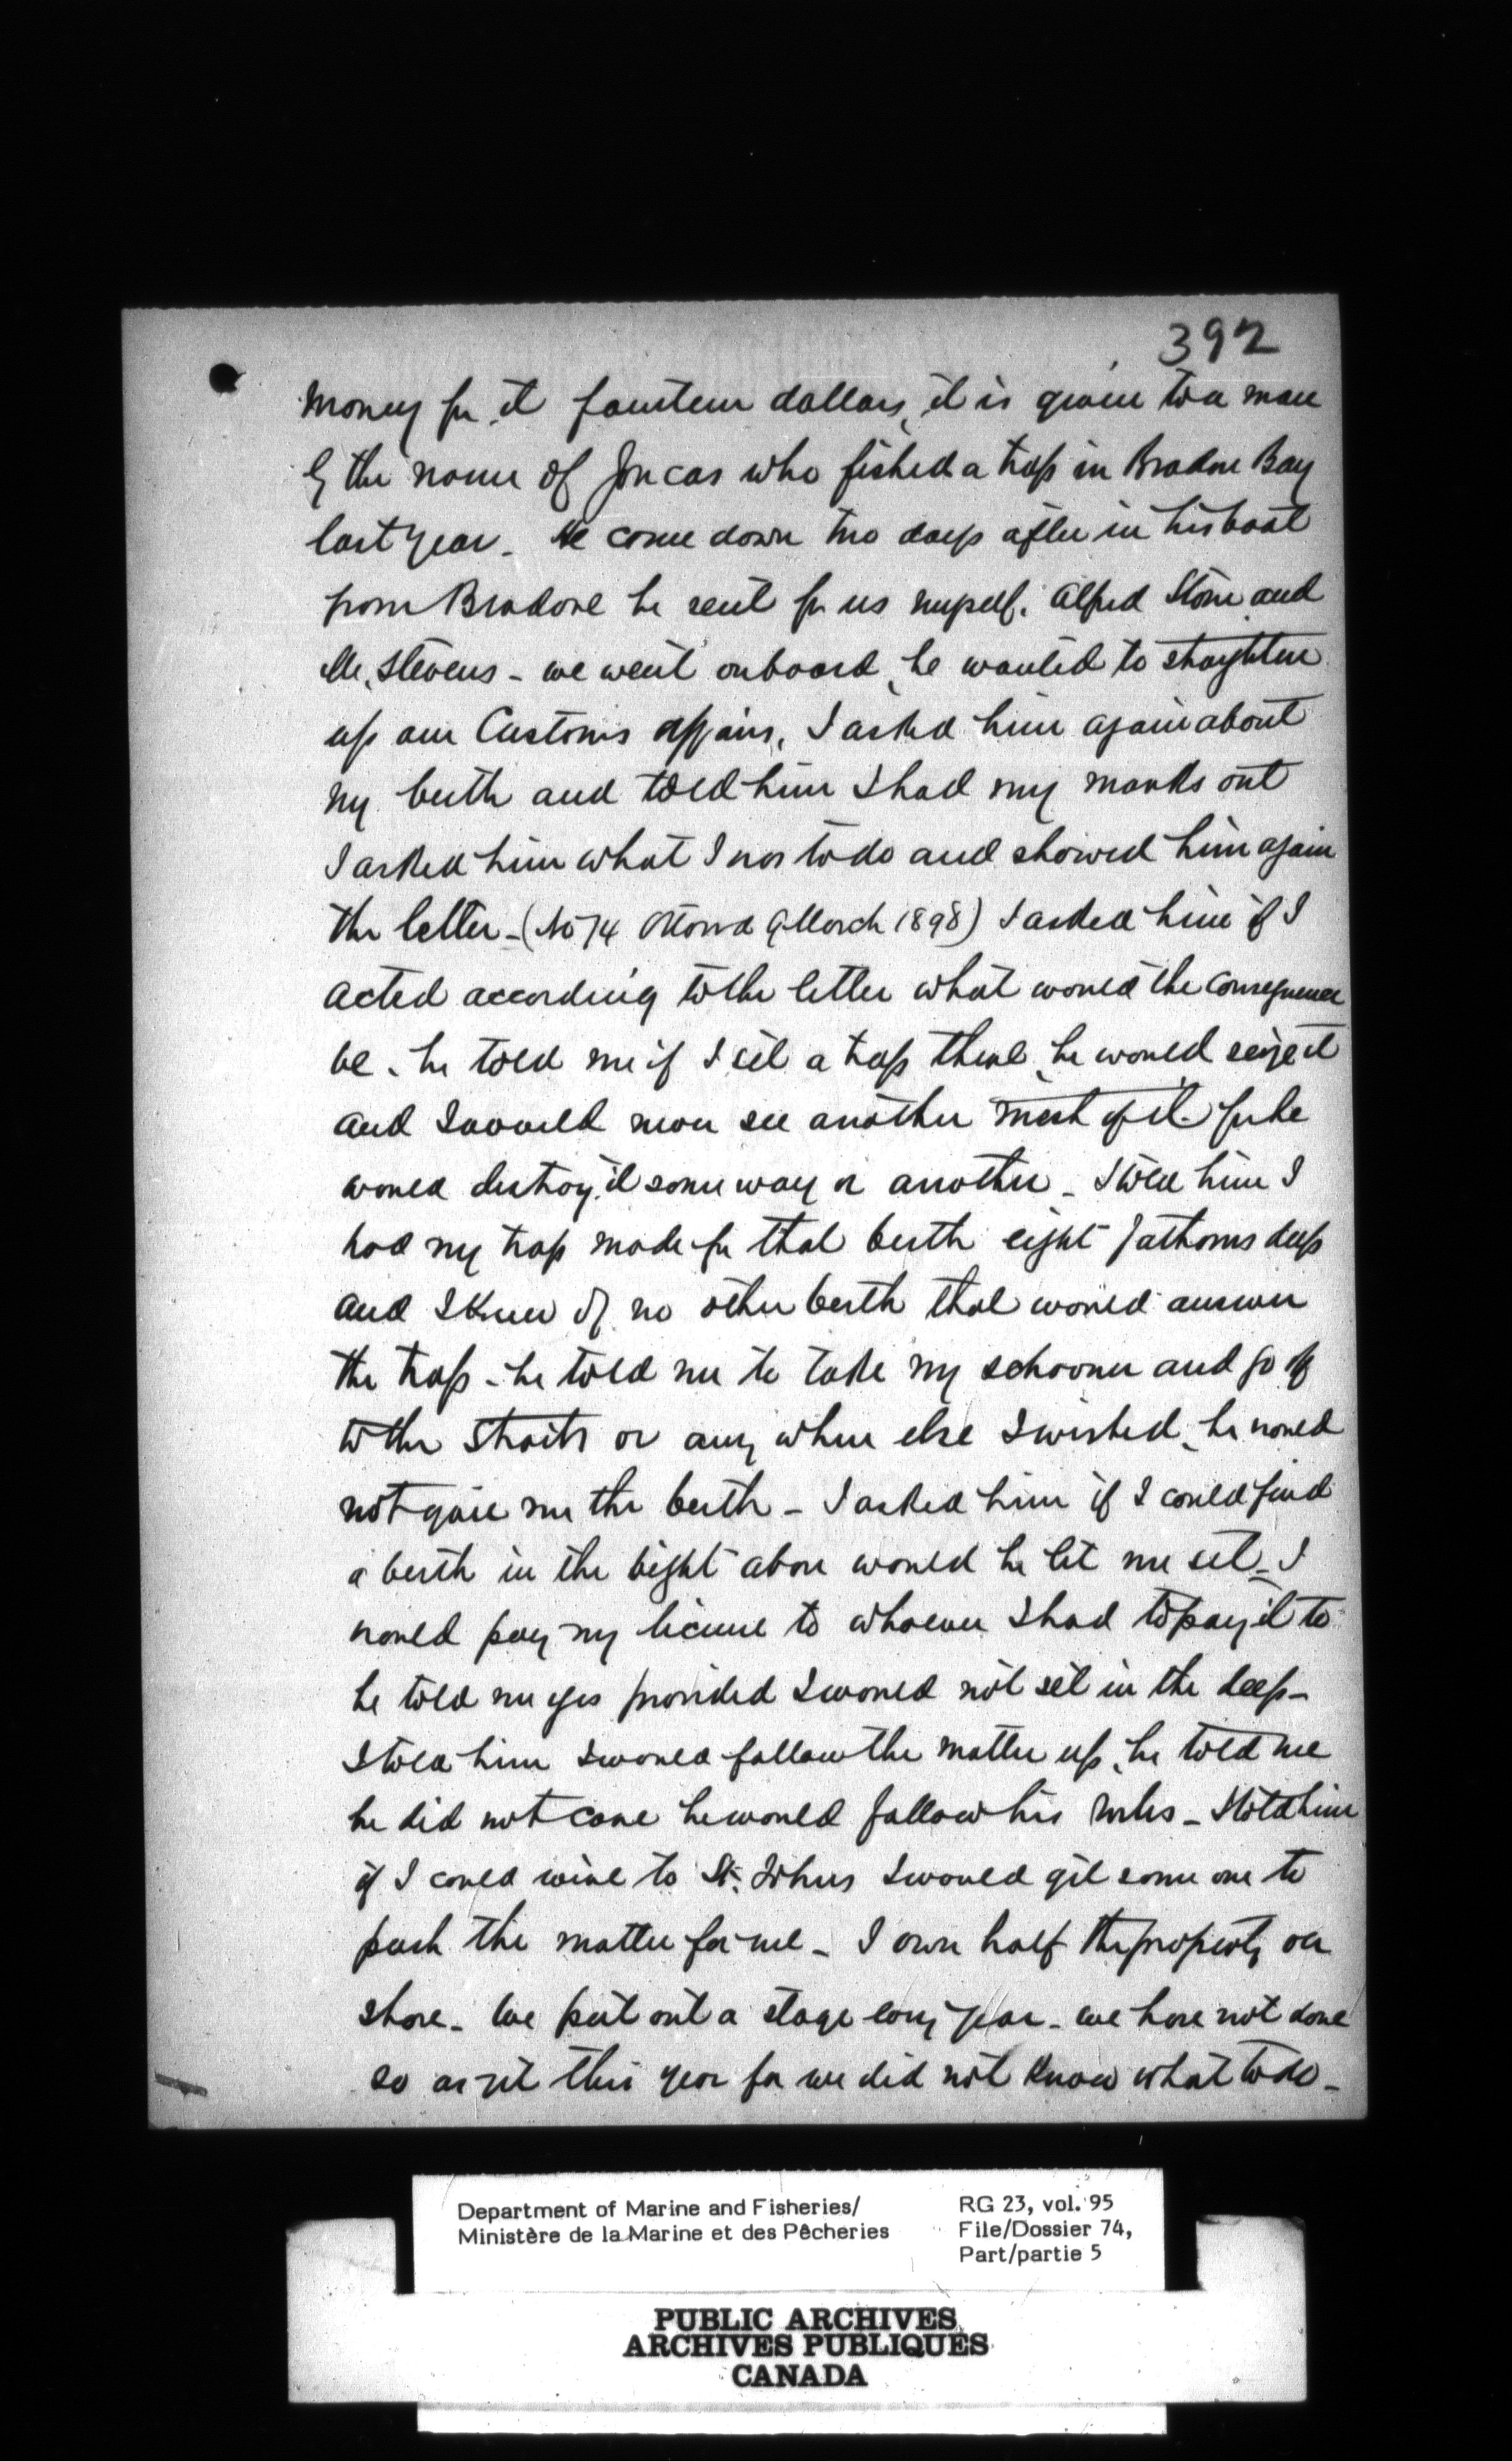 392
money for it fourteen dollars, it is given to a man
by the name of Joncas who fished a trap in Bradore Bay
last year - He come down two days after in his boat
from Bradore he sent for us myself, Alfred Stone and
Mr. Stevens - we went onboard, he wanted to straighten
up our Customs affairs, I asked him again about
my berth and told him I had my marks out
I asked him what I was to do and showed him again
the letter - (No 74 Ottawa 9 March 1898) I asked him if I
acted according to the letter what would the consequence
be, he told me if I set a trap there, he would seize it
and I would never see another mesh of it for he
would destroy it some way or another - I told him I
had my trap made for that berth eight fathoms deep
and I knew of no other berth that would answer
the trap - he told me to take my schooner and go off
to the Straits or any where else I wished, he would
not give me the berth - I asked him if I could find
a berth in the bight above would he let me set - I
would pay my license to whoever I had to pay it to
he told me yes provided I would not set in the deep -
I told him I would follow the matter up, he told me
he did not care he would follow his rules - I told him
if I could wire to St. Johns I would get some one to
push the matter for me - I own half the property on
shore - We put out a stage every year - we have not done
so as yet this year for we did not know what to do -
Department of Marine and Fisheries/
Ministère de la Marine et des Pêcheries
RG 23, vol. 95
File/Dossier 74,
Part/partie 5
PUBLIC ARCHIVES
ARCHIVES PUBLIQUES
CANADA